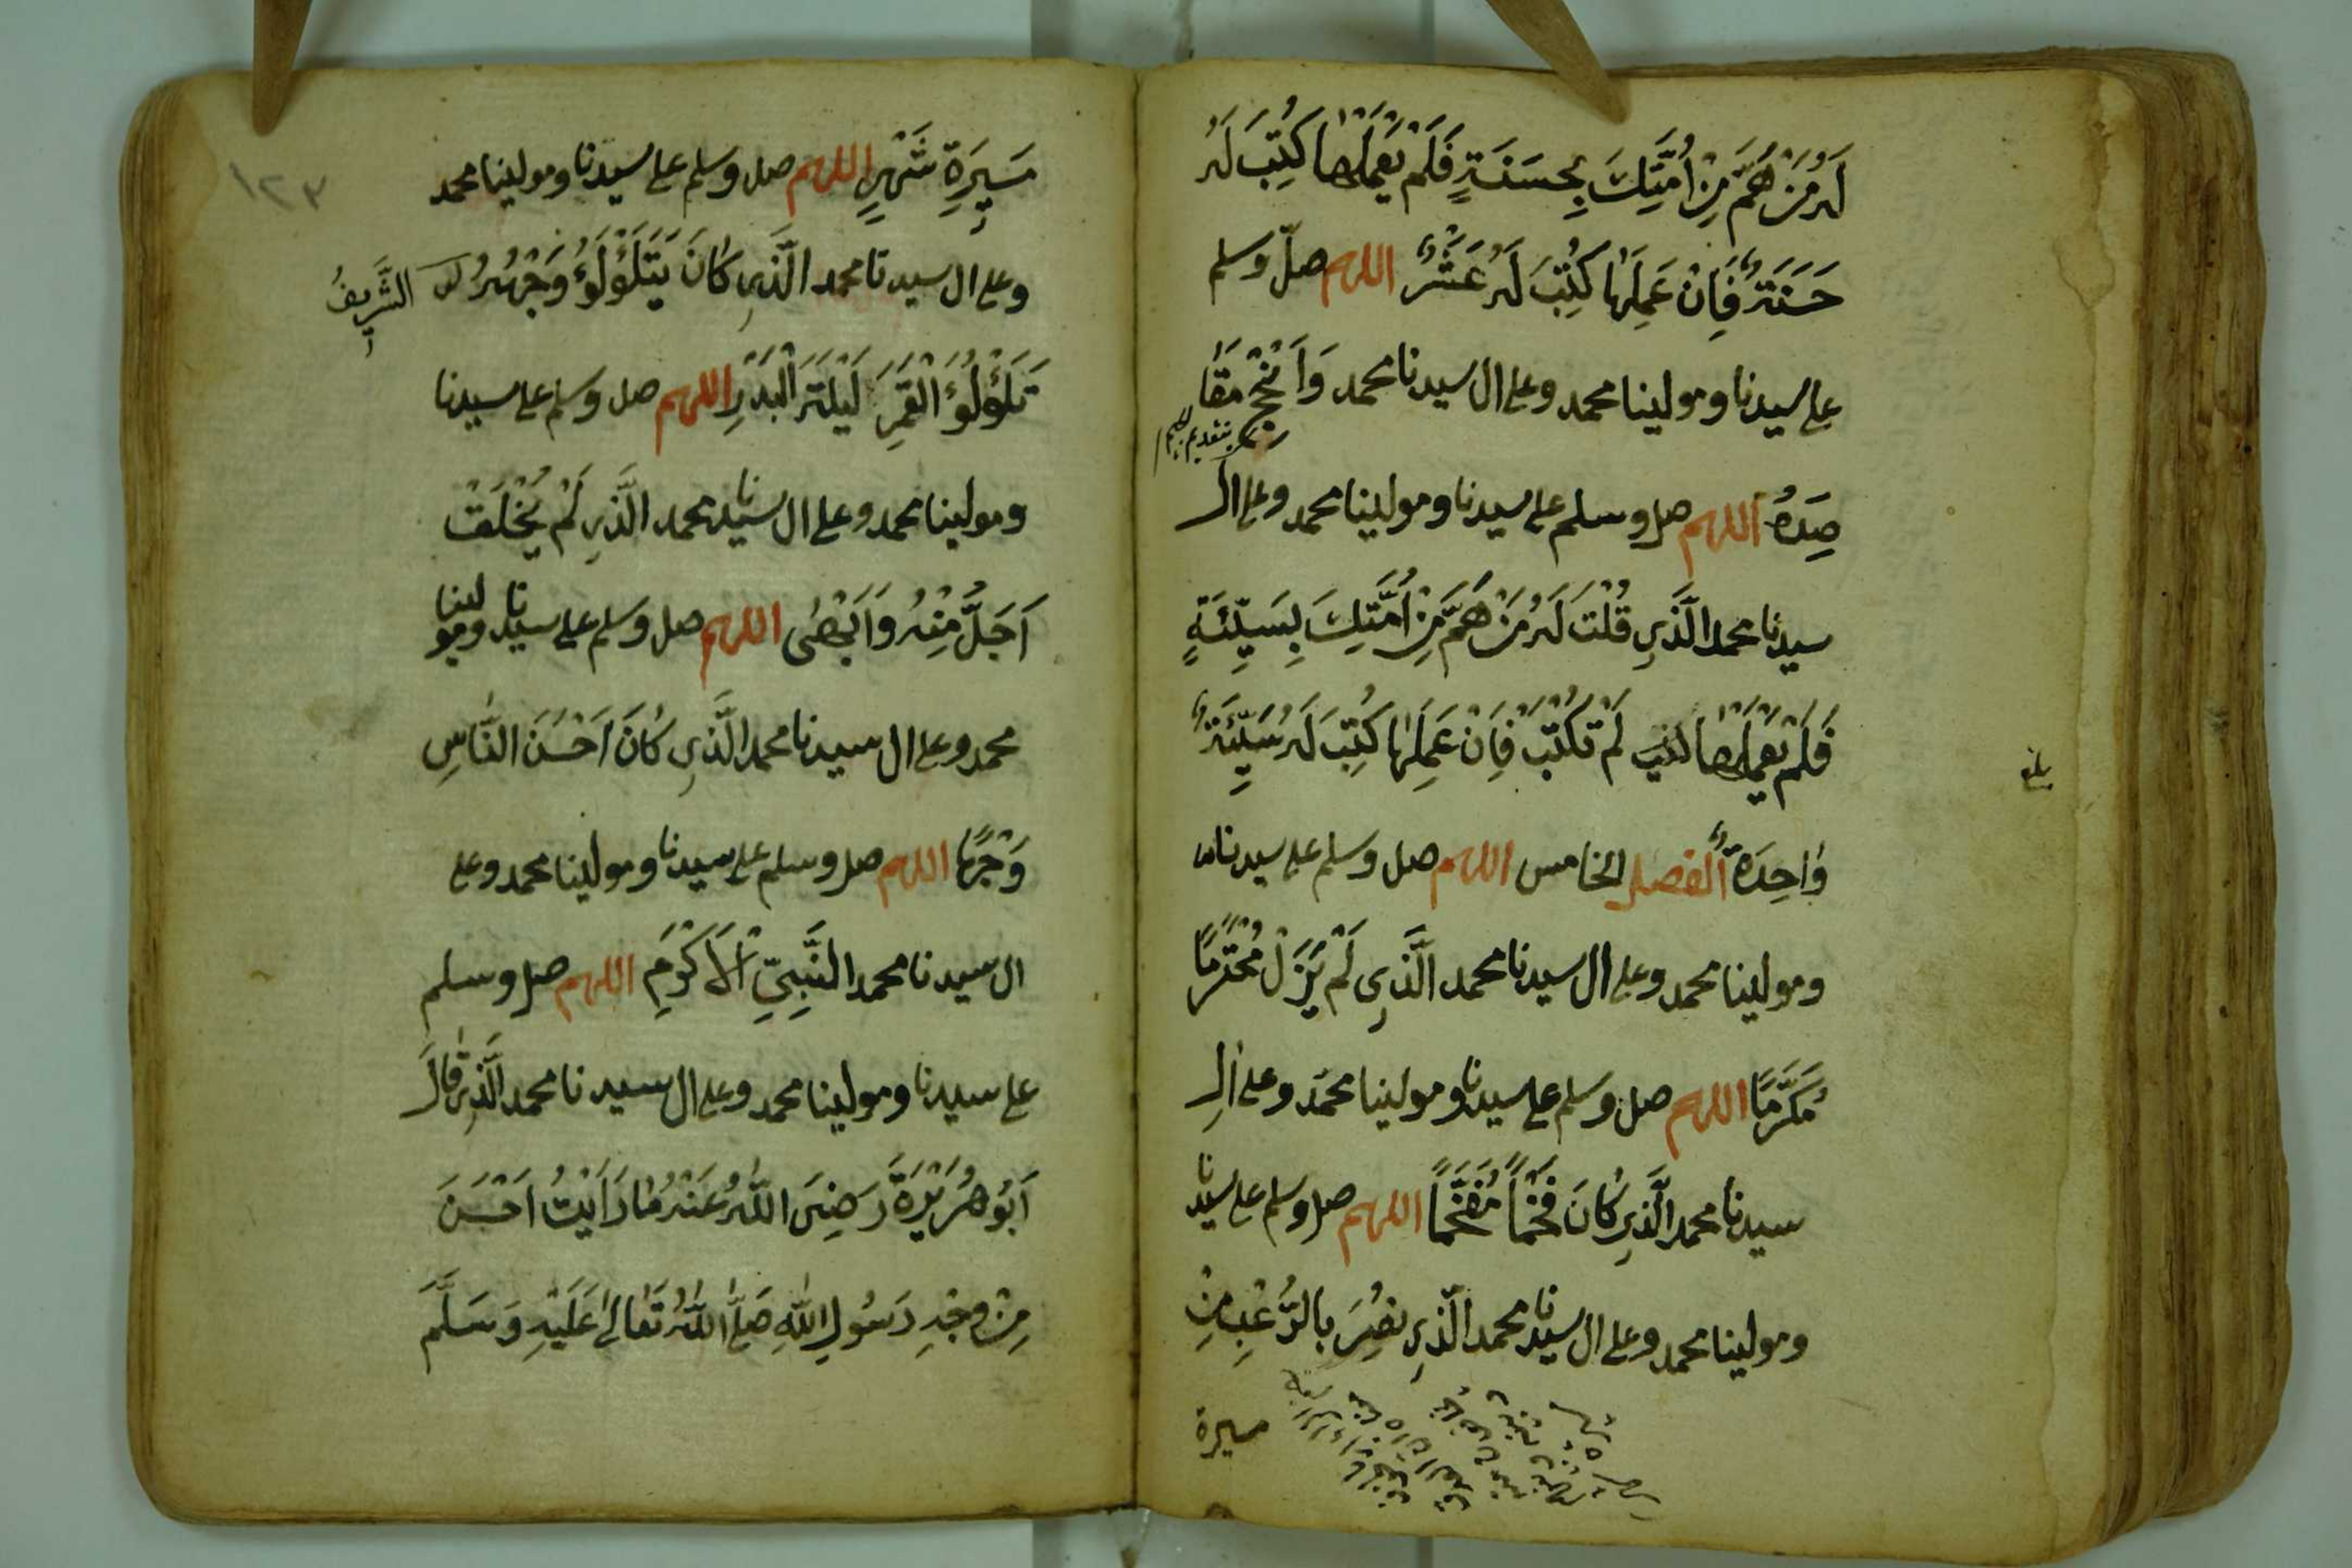 لَهُ مَنْ هَمَّ مِنْ اُمَّتِكَ بِحَسَنَةٍ فَلَمْ يَعْمَلْهَا كُتِبَ لَهُ
حَسَنَةٌ فَاِنْ عَمِلَهَا كُتِبَ لَهُ عَشْرٌ اللهم صلّ وسلم
على سيدنا ومولينا محمد وعلى ال سيدنا محمد وَاَنْجِحْ مَقَا
بتقديم الجيم
صِدَهُ اللهم صل وسلم على سيدنا ومولينا محمد وعلى ال
سيدنا محمد الَّذِي قُلْتَ لَهُ مَنْ هَمَّ مِنْ اُمَّتِكَ بِسَيِّئَةٍ
فَلَمْ يَعْمَلْهَا لَمْ تُكْتَبْ فَاِنْ عَمِلَهَا كُتِبَ لَهُ سَيِّئَةٌ
بلغ
وَاحِدَةٌ اَلفصل الخامس اللهم صل وسلم على سيدنا
ومولينا محمد وعلى ال سيدنا محمد الَّذِي لَمْ يَزَلْ مُحْتَرَمًا
مُكَرَّمًا اللهم صل وسلم على سيدنا ومولينا محمد وعلى الِ
سيدنا محمد الَّذِي كَانَ فَخْمًا مُفَخَّمًا اللهم صل وسلم على سيدنا
ومولينا محمد وعلى ال سيدنا محمد الَّذِي نُصِرَ بِالرُّعْبِ مِنْ
ميسرة
١٢٣
مَسِيرَةِ شَهْرٍ اللهم صل وسلم على سيدنا ومولينا محمد
وعلى ال سيدنا محمد الَّذِي كَانَ يَتَلَؤْلَؤُ وَجْهُهُ الشَّرِيفُ
تَلَؤْلُؤَ الْقَمَرِ لَيْلَةَ الْبَدْرِ اللهم صل وسلم على سيدنا
ومولينا محمد وعلى ال سيدنا محمد الَّذِي لَمْ يُخْلَقْ
اَجَلَّ مِنْهُ وَاَبْهَى اللهم صل وسلم على سيدنا ومولينا
محمد وعلى ال سيدنا محمد الَّذِي كَانَ اَحْسَنَ النَّاسِ
وَجْهًا اللهم صل وسلم على سيدنا ومولينا محمد وعلى
ال سيدنا محمد النَّبِيِّ الْاَكْرَمِ اللهم صل وسلم
على سيدنا ومولينا محمد وعلى ال سيدنا محمد الَّذِي قَالَ
اَبُو هُرَيْرَةَ رَضِىَ اللهُ عَنْهُ مَا رَاَيْتُ اَحْسَنَ
مِنْ وَجْهِ رَسُولِ اللهِ صَلَّى اللهُ تَعَالَى عَلَيْهِ وَسَلَّمَ